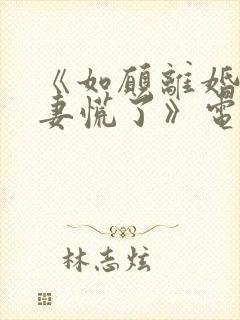 《如願離婚
妻慌了》電
林志炫